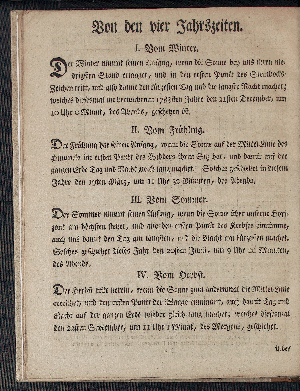 Von den vier Jahrszeiten.
I. Vom Winter.
Der Winter nimmt seinen Anfang, wenn die Sonne bey uns ihren niedrigsten Stand
und in den ersten Punkt des Steinbocks
Zeichen tritt, und uns dann den kürzesten Tag und die längste Nacht macht;
welches diesmal im 1783sten Jahre den 21sten December, um
10 Uhr Minut, des Abends, geschehen ist.
II. Vom Frühling.
Der Frühling hat seinen Anfang, wenn die Sonne auf der Mittel-Linie des
Himmels im ersten Punkt des Widders ihren Sitz hat, und damit auf der
ganzen Erde Tag und Nacht gleich lang machet. Solches geschiehet in diesem
Jahre den 19ten März, um 11 Uhr 32 Minuten, des Abends.
III. Vom Sommer.
Der Sommer nimmt seinen Anfang, wenn die Sonne über unserm Horizont
am höchsten stehet, und also den ersten Punkt des Krebses einnimmt,
auch uns damit den Tag am längsten, und die Nacht am kürzesten machet.
Solches geschiehet dieses Jahr den Junii, um 9 Uhr Minuten,
des Abends.
IV. Vom Herbst.
Der Herbst tritt herein, wenn die Sonne zum andernmal die Mittel-Linie
erreichet, und den ersten Punkt der Waage einnimmt, auch damit Tag und
Nacht auf der ganzen Erde wieder gleich lang machet, welches diesesmal
den 22sten September, um 11 Uhr 1 Minut, des Morgens, geschiehet.